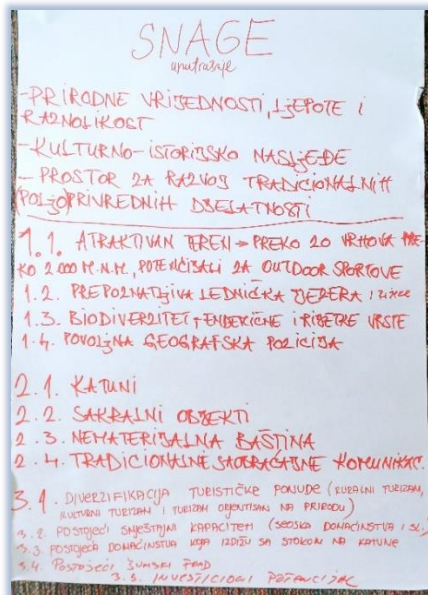 SNAGE
unutrašnje
- PRIRODNE VRIJEDNOSTI, LJEPOTE I
RAZNOLIKOST
- KULTURNO-ISTORIJSKO NASLJEĐE
- PROSTOR ZA RAZVOJ TRADICIONALNIH
(POLJO)PRIVREDNIH DJELATNOSTI
1.1. ATRAKTIVAN TEREN → PREKO 20 VRHOVA PRE-
KO 2000 M.N.M., POTENCIJALI ZA OUTDOOR SPORTOVE
1.2. PREPOZNATLJIVA LEDNIČKA JEZERA I
1.3. BIODIVERZITET, ENDEMIČNE I RIJETKE VRSTE
1.4. POVOLJNA GEOGRAFSKA POZICIJA
2.1. KATUNI
2.2. SAKRALNI OBJEKTI
2.3. NEMATERIJALNA BAŠTINA
2.4. TRADICIONALNE SAOBRAĆAJNE KOMUNIKAC.
3.1. DIVERZIFIKACIJA TURISTIČKE PONUDE (RURALNI TURIZAM,
KULTURNI TURIZAM I TURIZAM ORJENTISAN NA PRIRODU)
3.2. POSTOJEĆI SMJEŠTAJNI KAPACITETI (SEOSKA DOMAĆINSTVA I SL.)
3.3. POSTOJEĆA DOMAĆINSTVA KOJA IZDIŽU SA STOKOM NA KATUNE
3.4. POSTOJEĆI ŠUMSKI
3.5. INVESTICIONI POTENCIJAL